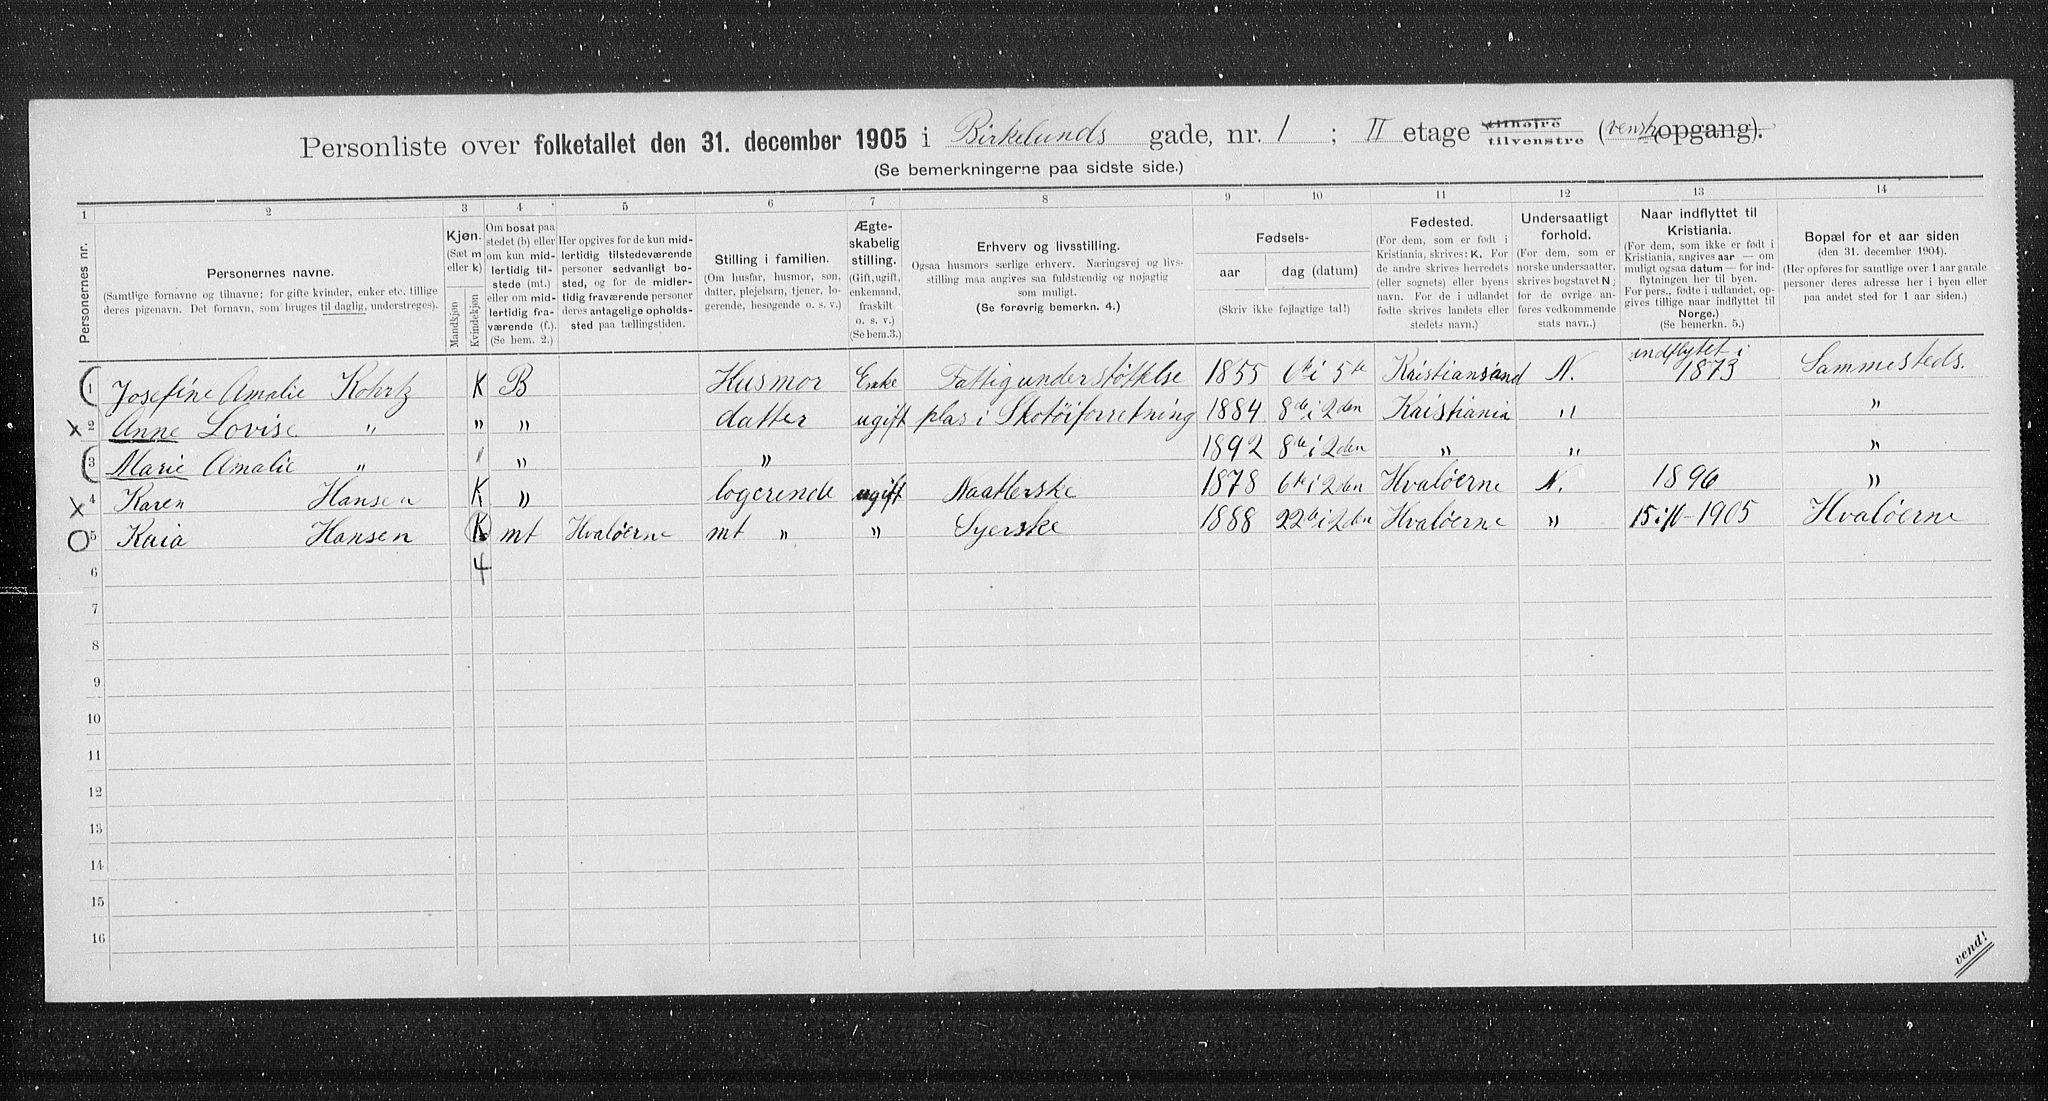 Personliste over folketallet den 31. december 1905 i Birkelunds gade, nr. 1 ; II etage tilhøjre tilvenstre (venstre opgang).
(Se bemerkningerne paa sidste side.)
1 2 3 4 5 6 7 8 9 10 11 12 13 14
Personernes nr.
Personernes navne.
(Samtlige fornavne og tilnavne; for gifte kvinder, enker etc. tillige deres pigenavn. Det fornavn, som bruges til daglig, understreges).
Kjøn. (Sæt m eller k) Mandkjøn Kvindekjøn
Om bosat paa stedet (b) eller om kun midlertidig tilstede (mt.) eller om midlertidig fraværende (f.). (Se bem. 2.)
Her opgives for de kun midlertidig tilstedeværende personer sedvanligt bosted, og for de midlertidig fraværende personer deres antagelige opholdssted paa tællingstiden.
Stilling i familien. (Om husfar, husmor, søn, datter, plejebarn, tjener, logerende, besøgende o. s. v.)
Ægteskabelig stilling. (Gift, ugift, enkemand, fraskilt o. s. v.) (Se bem.3.)
Erhverv og livsstilling. Ogsaa husmors særlige erhverv. Næringsvej og livsstilling maa angives saa fuldstændig og nøjagtig som muligt. (Se forøvrig bemerkn. 4.)
Fødsels- aar dag (datum) (Skriv ikke fejlagtige tal!)
Fødested. (For dem, som er født i Kristiania, skrives: K. For de andre skrives herredets (eller sognets) eller byens navn. For de i udlandet fødte skrives landets eller stedets navn.)
Undersaatligt forhold. (For dem, som er norske undersaatter, skrives bogstavet N; for de øvrige anføres vedkommende stats navn.)
Naar indflyttet til Kristiania. (For dem, som ikke er født i Kristiania, angives aar — om muligt ogsaa datum — for indflytningen her til byen. For pers., fødte i udlandet, opgives tillige naar indflyttet til Norge.) (Se bemerkn. 5.)
Bopæl for et aar siden (den 31. december 1904). (Her opføres for samtlige over 1 aar gamle personer deres adresse her i byen eller paa andet sted for 1 aar siden.)
1 Josefine Amalie Kohrtz K B Husmor Enke Fattigunderstøttelse 1855 6te i 5te Kristiansand N. indflytet i 1873 Sammesteds.
2 Anne Lovise " " " datter ugift plas i Skotöiforretning 1884 8de i 2den Kristiania " "
3 Marie Amalie " " " " 1892 8de i 2den " " "
4 Karen Hansen K " logerende ugift Naatlerske 1878 6te i 2den Hvalöerne N. 1896 "
5 Kaia Hansen K mt Hvalöerne mt " " Syerske 1888 22de i 2den Hvalöerne " 15 i 10 - 1905 Hvalöerne
6 4
7
8
9
10
11
12
13
14
15
16
vend!